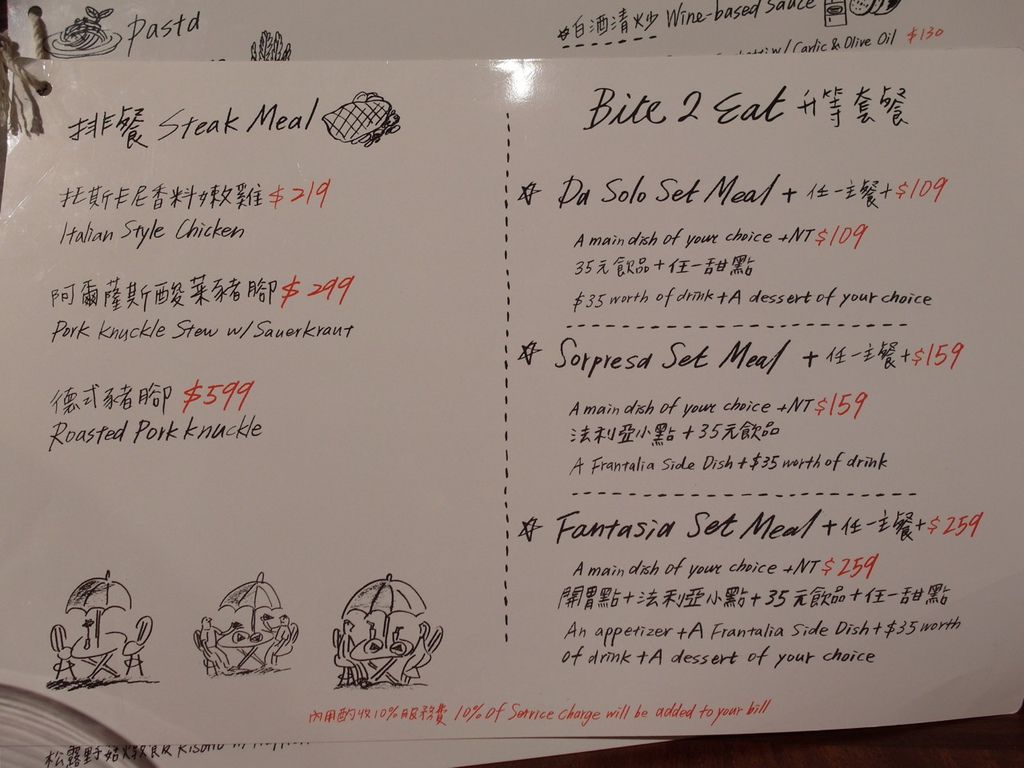 Pasta
*白酒清炒 Wine-based Sauce
w/ Garlic & Olive Oil $130
排餐 Steak Meal
托斯卡尼香料嫩雞 $219
Italian Style Chicken
阿爾薩斯酸菜豬腳 $299
Pork Knuckle Stew w/Sauerkraut
德式豬腳 $599
Roasted Pork Knuckle
Bite 2 Eat 升等套餐
☆ Da Solo Set Meal + 任一主餐+$109
A main dish of your choice +NT$109
35元飲品+任一甜點
$35 worth of drink+A dessert of your choice
☆ Sorpresa Set Meal + 任一主餐+$159
A main dish of your choice +NT$159
法利亞小點+35元飲品
A Frantalia Side Dish+$35 worth of drink
☆ Fantasia Set Meal +任一主餐+$259
A main dish of your choice +NT$259
開胃點+法利亞小點+35元飲品+任一甜點
An appetizer+A Frantalia Side Dish+$35 worth
of drink +A dessert of your choice
內用酌收10%服務費 10% Of Service Charge will be added to your bill
松露野菇燉飯